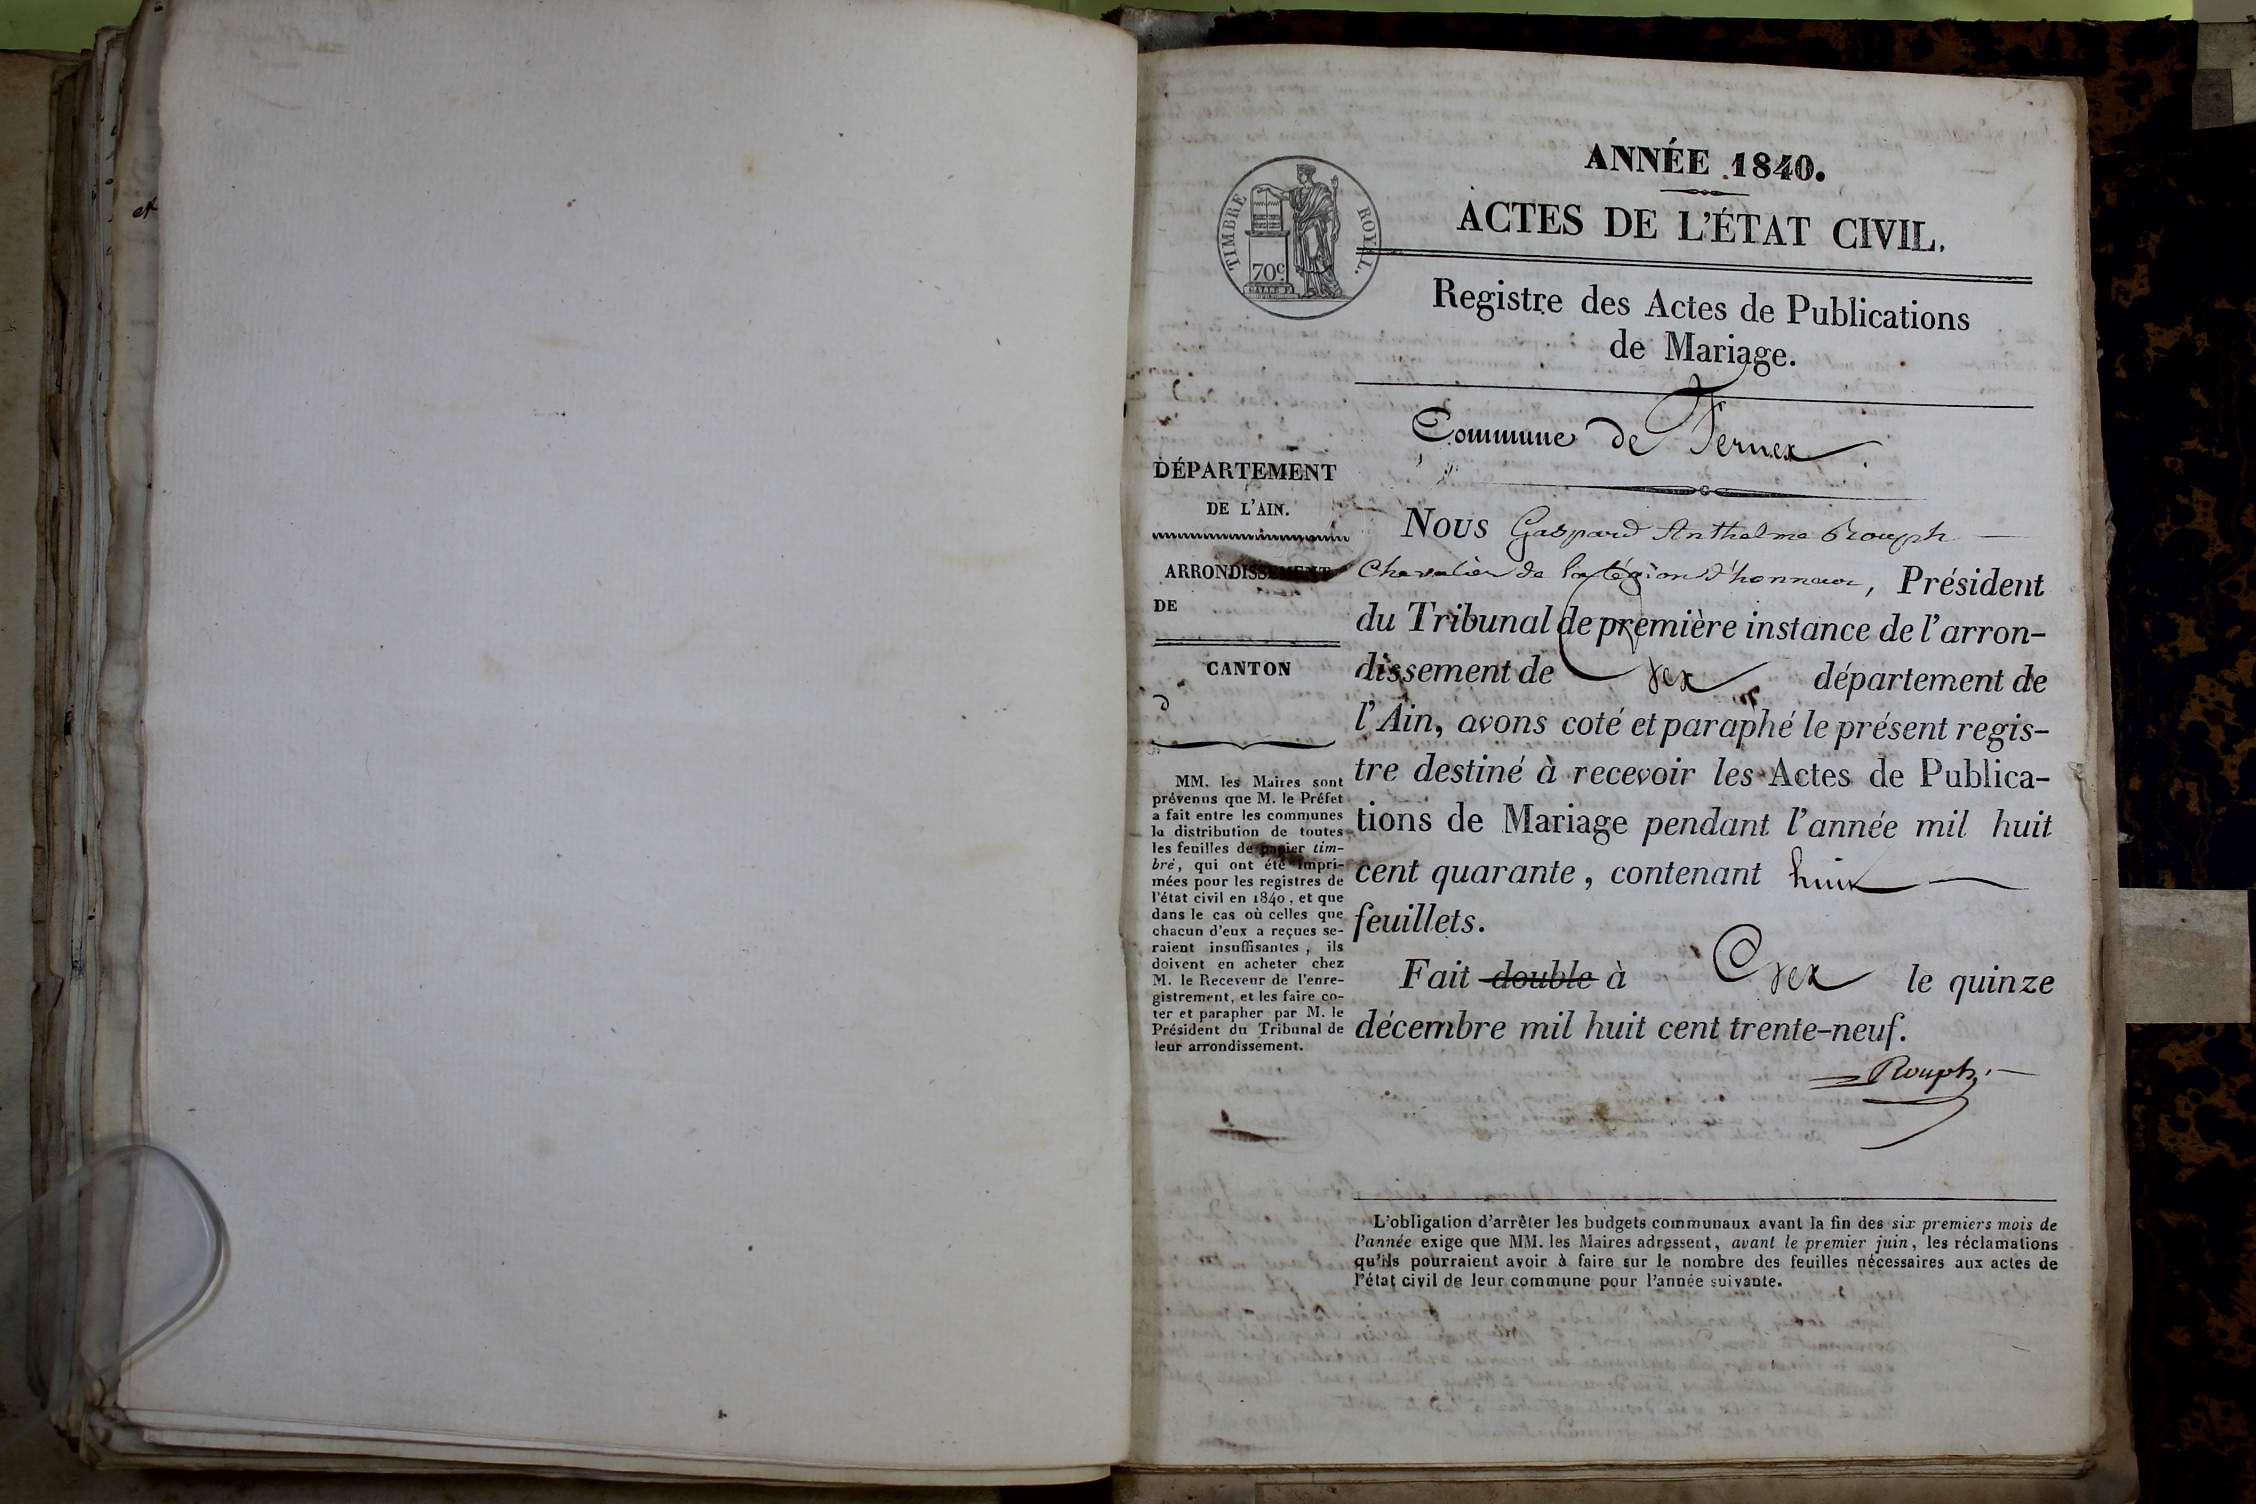 et
ANNÉE 1840.
ACTES DE L'ÉTAT CIVIL.
TIMBRE ROYAL.
70c
Registre des Actes de Publications
de Mariage.
Commune de Fernex
DÉPARTEMENT
DE L'AIN.
ARRONDISSEMENT
DE
CANTON
D
MM. les Maires sont
prévenus que M. le Préfet
a fait entre les communes
la distribution de toutes
les feuilles de papier tim-
bré, qui ont été impri-
mées pour les registres de
l'état civil en 1840, et que
dans le cas où celles que
chacun d'eux a reçues se-
raient insuffisantes, ils
doivent en acheter chez
M. le Receveur de l'enre-
gistrement, et les faire co-
ter et parapher par M. le
Président du Tribunal de
leur arrondissement.
Nous Gaspard Anthelme Rouph
Chevalier de la Légion d'honneur, Président
du Tribunal de première instance de l'arron-
dissement de Gex département de
l'Ain, avons coté et paraphé le présent regis-
tre destiné à recevoir les Actes de Publica-
tions de Mariage pendant l'année mil huit
cent quarante, contenant huit
feuillets.
Fait double à Gex le quinze
décembre mil huit cent trente-neuf.
Rouph
L'obligation d'arrêter les budgets communaux avant la fin des six premiers mois de
l'année exige que MM. les Maires adressent, avant le premier juin, les réclamations
qu'ils pourraient avoir à faire sur le nombre des feuilles nécessaires aux actes de
l'état civil de leur commune pour l'année suivante.